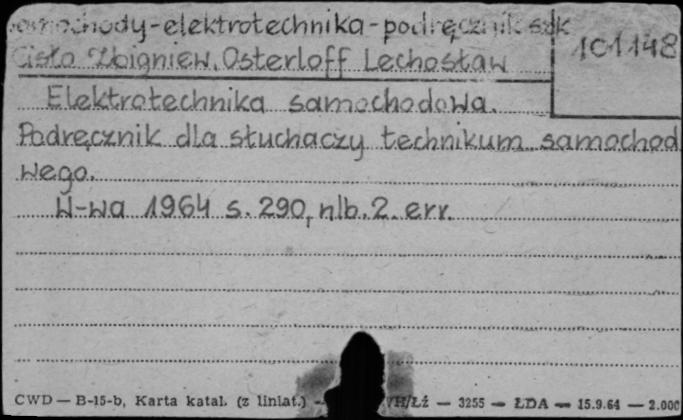 samochody-elektrotechnika-podręcznik szk
101148
Cisło Zbigniew, Osterloff Lechosław
Elektrotechnika samochodowa.
Podręcznik dla słuchaczy technikum samochod
wego.
W-wa 1964 s. 290, nlb. 2. err.
CWD — B-15-b, Karta katal. (z liniat.) — /Łź — 3255 — ŁDA — 15.9.64 — 2.000